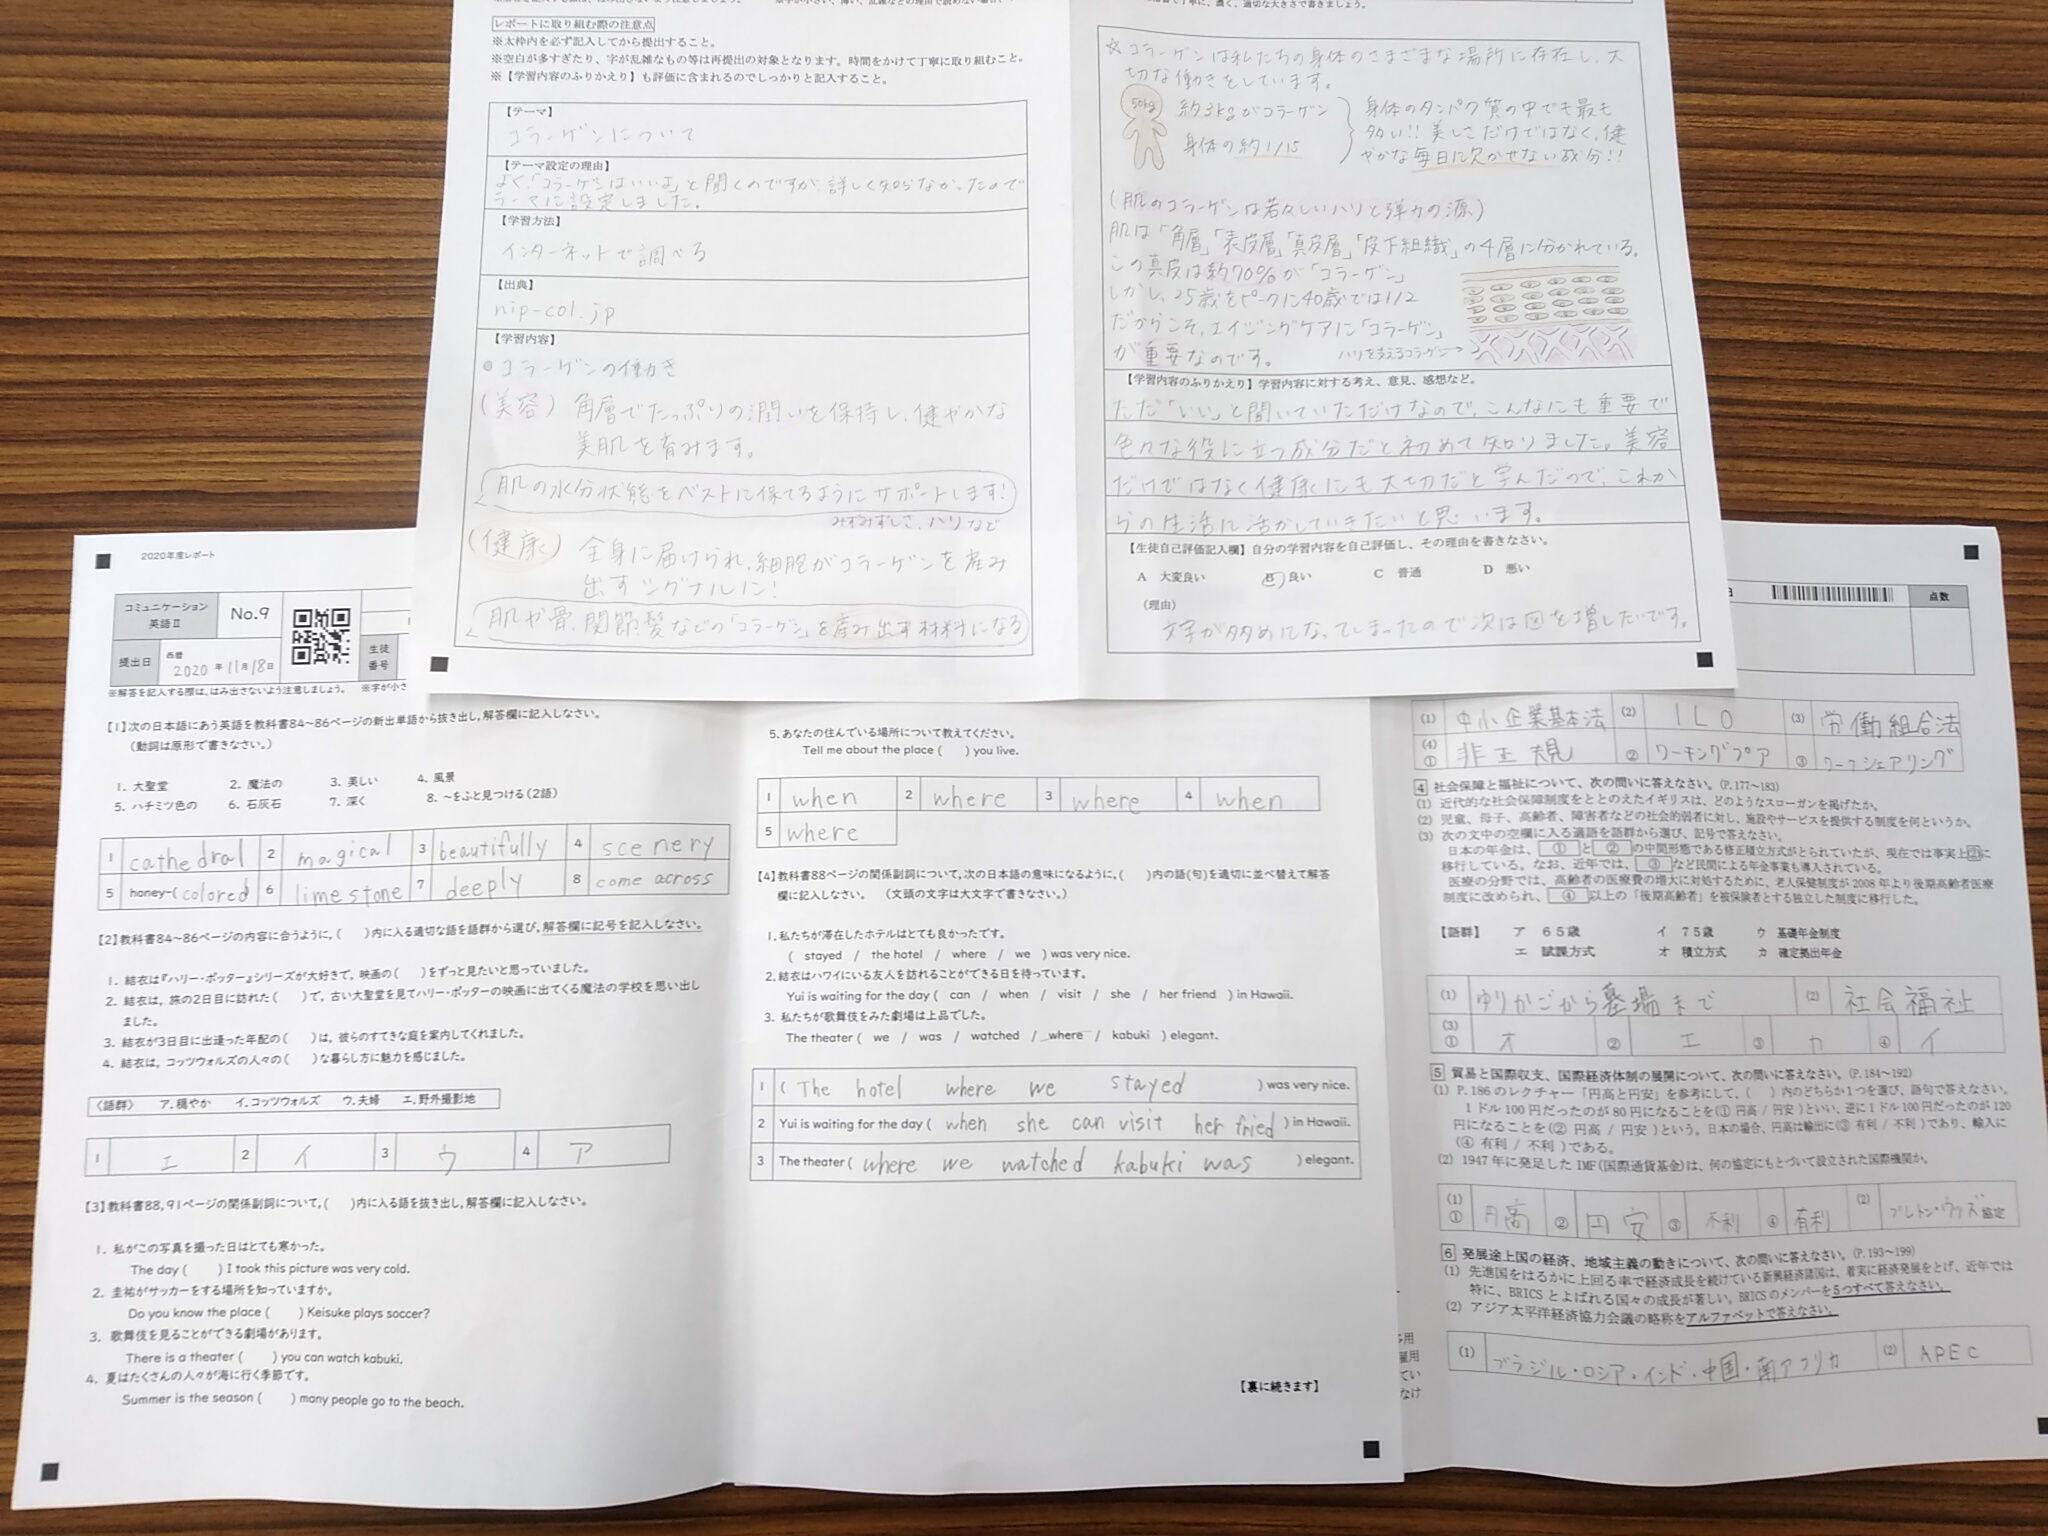 レポートに取り組む際の注意点
※太枠内を必ず記入してから提出すること。
※空白が多すぎたり、字が乱雑なもの等は再提出の対象となります。時間をかけて丁寧に取り組むこと。
※【学習内容のふりかえり】も評価に含まれるのでしっかりと記入すること。
【テーマ】
コラーゲンについて
【テーマ設定の理由】
よく、「コラーゲンはいいよ」と聞くのですが、詳しく知らなかったので
テーマに設定しました。
【学習方法】
インターネットで調べる
【出典】
nip-col.jp
【学習内容】
コラーゲンの働き
(美容) 角層でたっぷりの潤いを保持し、健やかな
美肌を育みます。
肌の水分状態をベストに保てるようにサポートします!
みずみずしさ、ハリなど
(健康) 全身に届けられ、細胞がコラーゲンを産み
出すシグナルに!
肌や骨、関節、髪などの「コラーゲン」を産み出す材料になる
☆コラーゲンは私たちの身体のさまざまな場所に存在し、大
切な働きをしています。
50kg 約3kgがコラーゲン
身体の約1/15
身体のタンパク質の中でも最も
多い!! 美しさだけではなく、健
やかな毎日に欠かせない成分!!
(肌のコラーゲンは若々しいハリと弾力の源)
肌は「角層」「表皮層」「真皮層」「皮下組織」の4層に分かれている。
この真皮は約70%が「コラーゲン」
しかし、25歳をピークに40歳では1/2
だからこそ、エイジングケアに「コラーゲン」
が重要なのです。
ハリを支えるコラーゲン→
【学習内容のふりかえり】学習内容に対する考え、意見、感想など。
ただ「いい」と聞いていただけなので、こんなにも重要で
色々な役に立つ成分だと初めて知りました。美容
だけではなく健康にも大切だと学んだので、これか
らの生活に活かしていきたいと思います。
【生徒自己評価記入欄】自分の学習内容を自己評価し、その理由を書きなさい。
A 大変良い B 良い C 普通 D 悪い
(理由)
文字が多めになってしまったので次は図を増したいです。
2020年度レポート
コミュニケーション
英語Ⅱ
No.9
提出日
西暦
2020年11月18日
生徒
番号
※解答を記入する際は、はみ出さないよう注意しましょう。 ※字が小さ
【1】次の日本語にあう英語を教科書84〜86ページの新出単語から抜き出し,解答欄に記入しなさい。
(動詞は原形で書きなさい。)
1. 大聖堂 2. 魔法の 3. 美しい 4. 風景
5. ハチミツ色の 6. 石灰石 7. 深く 8. 〜をふと見つける(2語)
1 cathedral 2 magical 3 beautifully 4 scenery
5 honey-(colored 6 limestone 7 deeply 8 come across
【2】教科書84〜86ページの内容に合うように,( )内に入る適切な語を語群から選び,解答欄に記号を記入しなさい。
1. 結衣は『ハリー・ポッター』シリーズが大好きで, 映画の( )をずっと見たいと思っていました。
2. 結衣は, 旅の2日目に訪れた( )で, 古い大聖堂を見てハリー・ポッターの映画に出てくる魔法の学校を思い出し
ました。
3. 結衣が3日目に出逢った年配の( )は, 彼らのすてきな庭を案内してくれました。
4. 結衣は, コッツウォルズの人々の( )な暮らし方に魅力を感じました。
〈語群〉 ア.穏やか イ.コッツウォルズ ウ.夫婦 エ.野外撮影地
1 エ 2 イ 3 ウ 4 ア
【3】教科書88,91ページの関係副詞について,( )内に入る語を抜き出し,解答欄に記入しなさい。
1. 私がこの写真を撮った日はとても寒かった。
The day ( ) I took this picture was very cold.
2. 圭祐がサッカーをする場所を知っていますか。
Do you know the place ( ) Keisuke plays soccer?
3. 歌舞伎を見ることができる劇場があります。
There is a theater ( ) you can watch kabuki.
4. 夏はたくさんの人々が海に行く季節です。
Summer is the season ( ) many people go to the beach.
5. あなたの住んでいる場所について教えてください。
Tell me about the place ( ) you live.
1 when 2 where 3 where 4 when
5 where
【4】教科書88ページの関係副詞について,次の日本語の意味になるように,( )内の語(句)を適切に並べ替えて解答
欄に記入しなさい。 (文頭の文字は大文字で書きなさい。)
1. 私たちが滞在したホテルはとても良かったです。
( stayed / the hotel / where / we ) was very nice.
2. 結衣はハワイにいる友人を訪れることができる日を待っています。
Yui is waiting for the day ( can / when / visit / she / her friend ) in Hawaii.
3. 私たちが歌舞伎をみた劇場は上品でした。
The theater ( we / was / watched / where / kabuki ) elegant.
1 ( The hotel where we stayed ) was very nice.
2 Yui is waiting for the day ( when she can visit her fried ) in Hawaii.
3 The theater ( where we watched kabuki was ) elegant.
【裏に続きます】
点数
(1) 中小企業基本法 (2) ILO (3) 労働組合法
(4)① 非正規 ② ワーキングプア ③ ワークシェアリング
4 社会保障と福祉について、次の問いに答えなさい。(P.177〜183)
(1) 近代的な社会保障制度をととのえたイギリスは、どのようなスローガンを掲げたか。
(2) 児童、母子、高齢者、障害者などの社会的弱者に対し、施設やサービスを提供する制度を何というか。
(3) 次の文中の空欄に入る適語を語群から選び、記号で答えなさい。
日本の年金は、①と②の中間形態である修正積立方式がとられていたが、現在では事実上②に
移行している。なお、近年では、③など民間による年金事業も導入されている。
医療の分野では、高齢者の医療費の増大に対処するために、老人保健制度が2008年より後期高齢者医療
制度に改められ、④以上の「後期高齢者」を被保険者とする独立した制度に移行した。
【語群】 ア 65歳 イ 75歳 ウ 基礎年金制度
エ 賦課方式 オ 積立方式 カ 確定拠出年金
(1) ゆりかごから墓場まで (2) 社会福祉
(3)① オ ② エ ③ カ ④ イ
5 貿易と国際収支、国際経済体制の展開について、次の問いに答えなさい。(P.184〜192)
(1) P.186のレクチャー「円高と円安」を参考にして、( )内のどちらか1つを選び、語句で答えなさい。
1ドル100円だったのが80円になることを(① 円高 / 円安)といい、逆に1ドル100円だったのが120
円になることを(② 円高 / 円安)という。日本の場合、円高は輸出に(③ 有利 / 不利)であり、輸入に
(④ 有利 / 不利)である。
(2) 1947年に発足したIMF(国際通貨基金)は、何の協定にもとづいて設立された国際機関か。
(1)① 円高 ② 円安 ③ 不利 ④ 有利 (2) ブレトン・ウッズ協定
6 発展途上国の経済、地域主義の動きについて、次の問いに答えなさい。(P.193〜199)
(1) 先進国をはるかに上回る率で経済成長を続けている新興経済諸国は、着実に経済発展をとげ、近年では
特に、BRICSとよばれる国々の成長が著しい。BRICSのメンバーを5つすべて答えなさい。
(2) アジア太平洋経済協力会議の略称をアルファベットで答えなさい。
(1) ブラジル・ロシア・インド・中国・南アフリカ (2) APEC